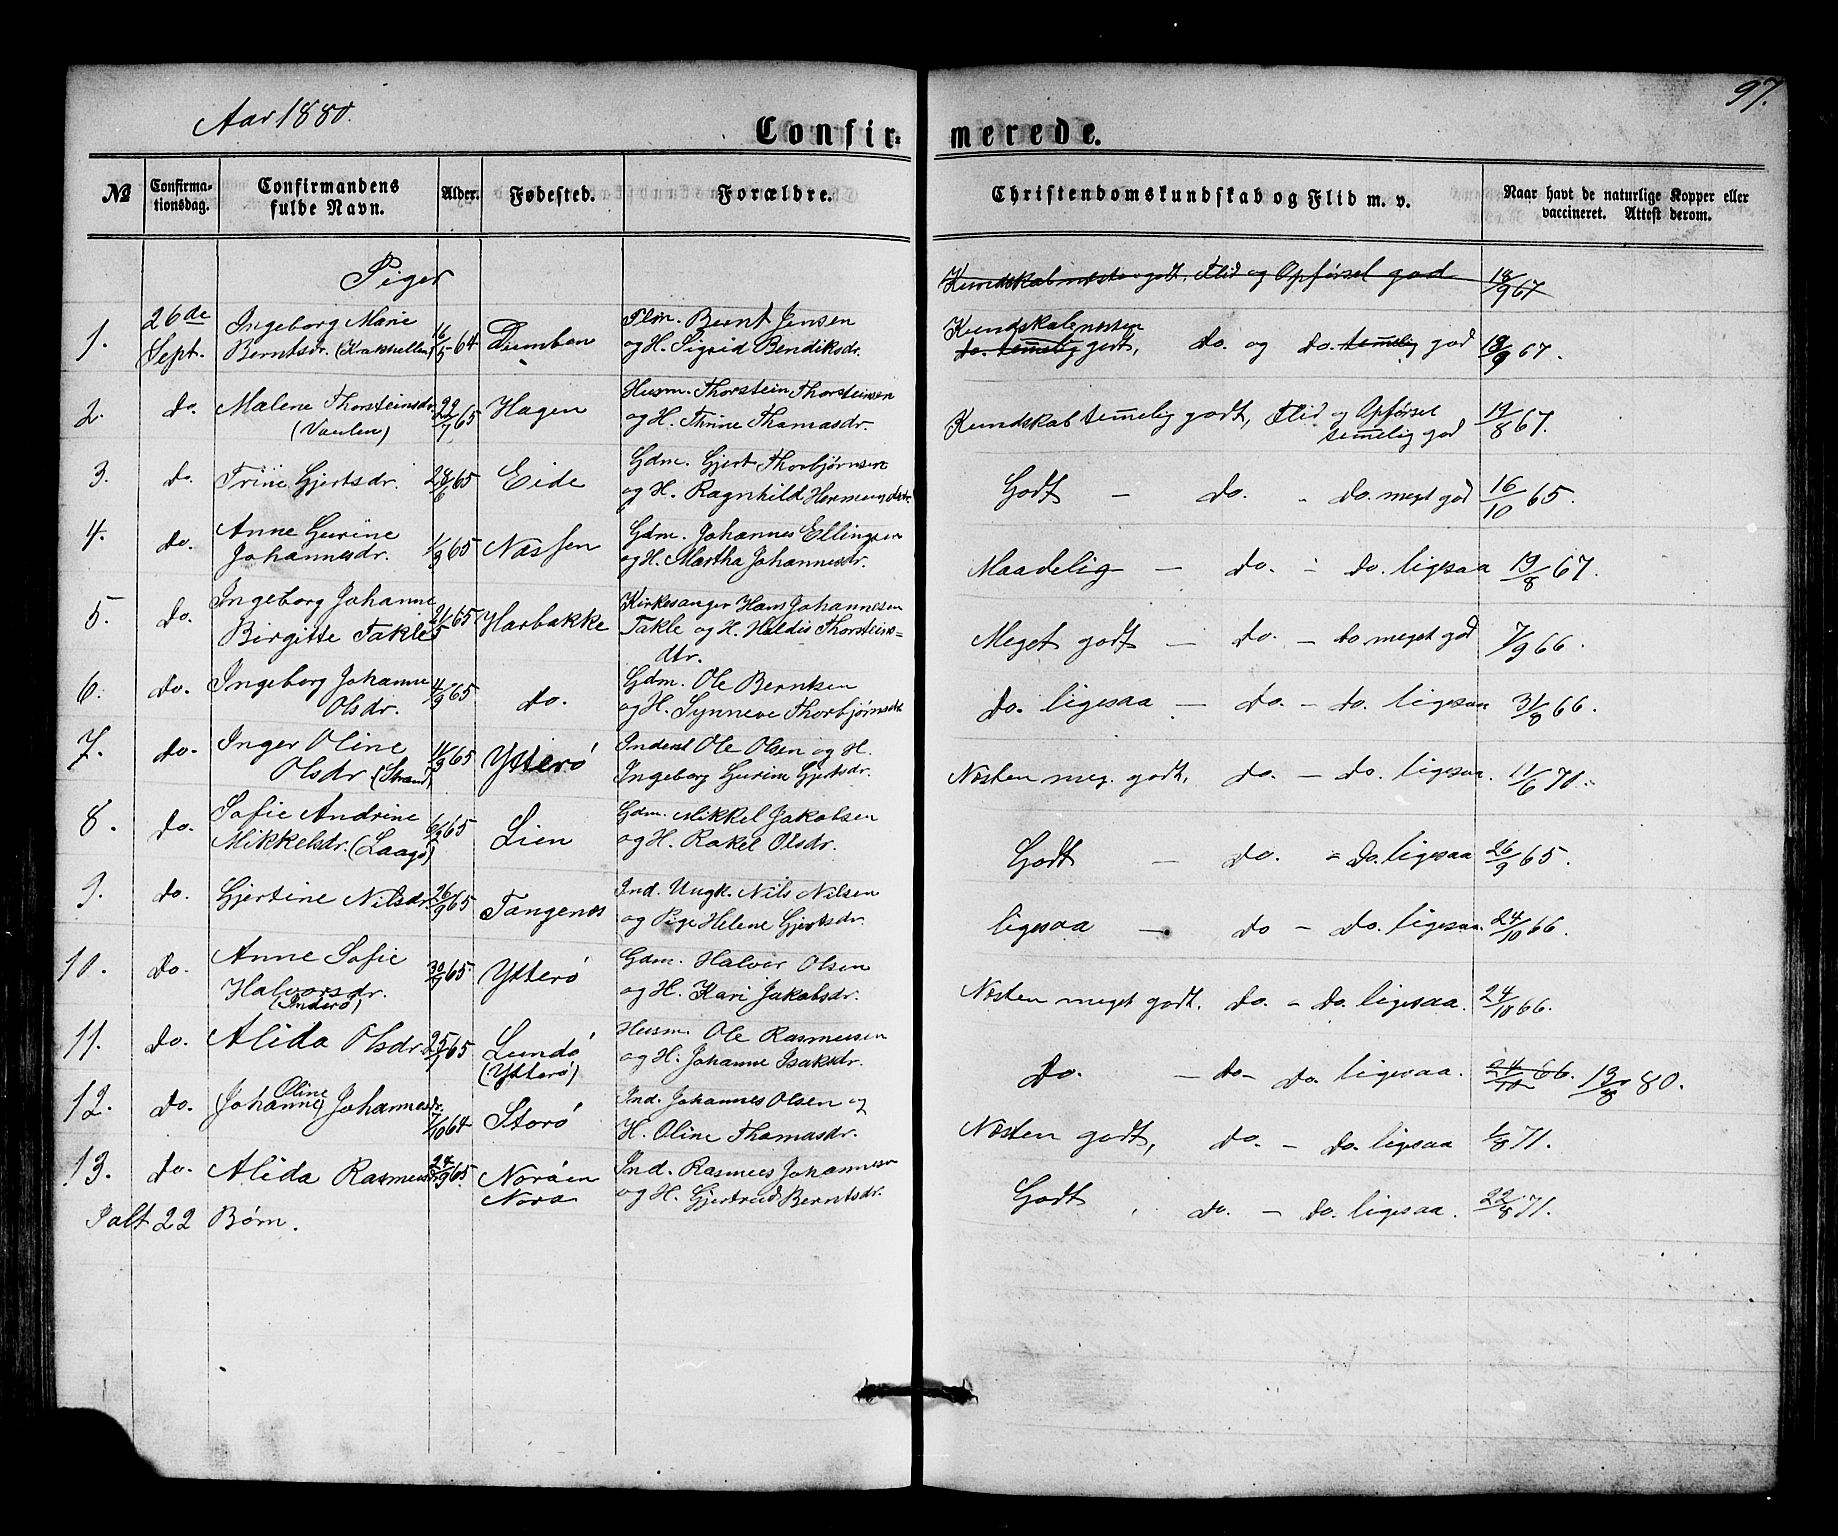 Aar 1880.
97.
Confirmerede.
No Confirmationsdag. Confirmandens fulde Navn. Alder. Fødested. Forældre. Christendomskundskab og Flid m. v. Naar havt de naturlige Kopper eller vaccineret. Attest derom.
Piger
Kundskab næsten godt, Flid og Opførsel god 18/9 67
1. 26de Sept. Ingeborg Marie Berntsdr. (Krakhellen) 5-64 Bernt Jensen og H. Sigrid Bendiksdr. Kundskab næsten do. temelig godt, do. og do. temelig god 18/9 67.
2. do. Malene Thorsteinsdr. (Vaulen) 22/7 65 Hagen Husm. Thorstein Thorsteinsen og H. Thrine Thomasdr. Kundskab temelig godt, Flid og Opførsel temelig god 19/8 67.
3. do. Trine Gjertsdr. 28/6 65 Eide Gdm. Gjert Thorbjørnsen og H. Ragnhild Hermundsdr. Godt - do. - do. meget god 16/10 65.
4. do. Anne Gurine Johannesdr. 1/9 65 Næssen Gdm. Johannes Ellingsen og H. Martha Johannesdr. Maadelig - do. - do. ligesaa 19/8 67.
5. do. Ingeborg Johanne Birgitte Takle 21/5 65 Harbakke Kirkesanger Hans Johannesen Takle og H. Heldis Thorsteinsdtr. Meget godt - do. - do meget god 7/9 66.
6. do. Ingeborg Johanne Olsdr. 4/9 65 do. Gdm. Ole Berntsen og H. Synneve Thorbjørnsdr. Do. ligesaa - do - do. ligesaa 31/8 66.
7. do. Inger Oline Olsdr (Strand) 11/9 65 Ytterø Inderst Ole Olsen og H. Ingeborg Gurine Gjertsdr. Næsten meg. godt, do. - do. ligesaa. 11/6 70.
8. do. Sofie Andrine Mikkelsdr. (Laagø) 6/9 65 Lien Gdm. Mikkel Jakobsen og H. Rakel Olsdr. Godt - do. - do. ligesaa 26/9 65.
9. do. Gjertine Nilsdr. 26/9 65 Tangenæs Ind. Ungk. Nils Nilsen og Pige Helene Gjertsdr. ligesaa - do - do. ligesaa. 24/10 66.
10. do. Anne Sofie Halvorsdr. (Inderø) 30/9 65. Ytterø Gdm. Halvor Olsen og H. Kari Jakobsdr. Næsten meget godt. do. - do. ligesaa. 24/10 66.
11. do. Alida Olsdr. 65 Lundø (Ytterø) Husm. Ole Rasmusen og H. Johanne Isaksdr. Do. - do - do. ligesaa. 24/10 66. 13/8 80.
12. do. (Johanne) Oline Johannesdr. 7/10 64 Storø Ind. Johannes Olsen og H. Oline Thomasdr. Næsten godt, do. - do. ligesaa 1/8 71.
13. do. Alida Rasmusdr. 24/9 65. Noraen Nora Ind. Rasmus Johannesen og H. Gjertrud Berntsdr. Godt do. - do. ligesaa. 22/8 71.
Ialt 22 Børn.